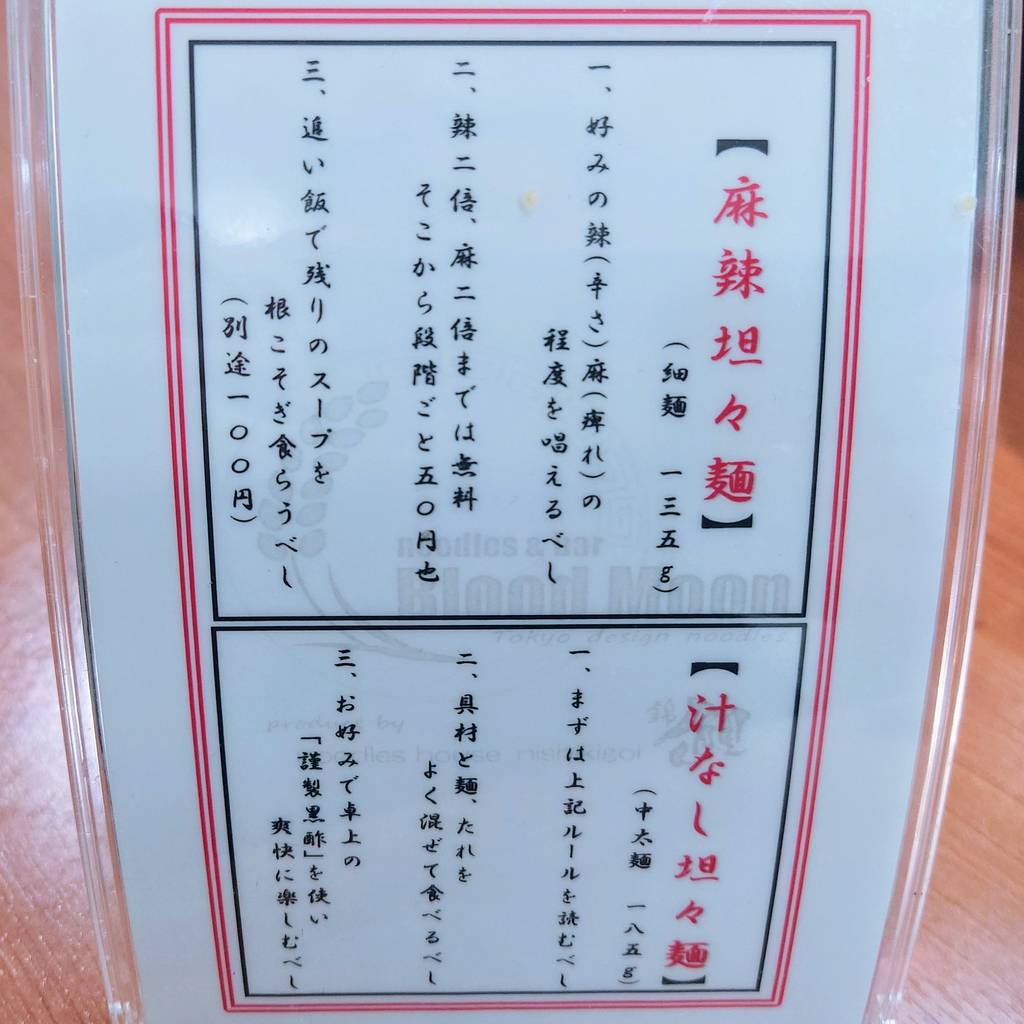 【麻辣坦々麺】
（細麺　一三五g）
一、好みの辣（辛さ）麻（痺れ）の
程度を唱えるべし
二、辣二倍、麻二倍までは無料
そこから段階ごと五〇円也
三、追い飯で残りのスープを
根こそぎ食らうべし
（別途一〇〇円）
【汁なし坦々麺】
（中太麺　一八五g）
一、まずは上記ルールを読むべし
二、具材と麺、たれを
よく混ぜて食べるべし
三、お好みで卓上の
「謹製黒酢」を使い
爽快に楽しむべし
noodles & bar
Blood Moon
Tokyo design noodles
produce by
noodles house nishikigoi